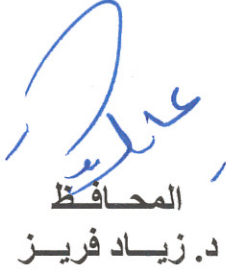 المحـافـظ
د. زيـاد فريـز